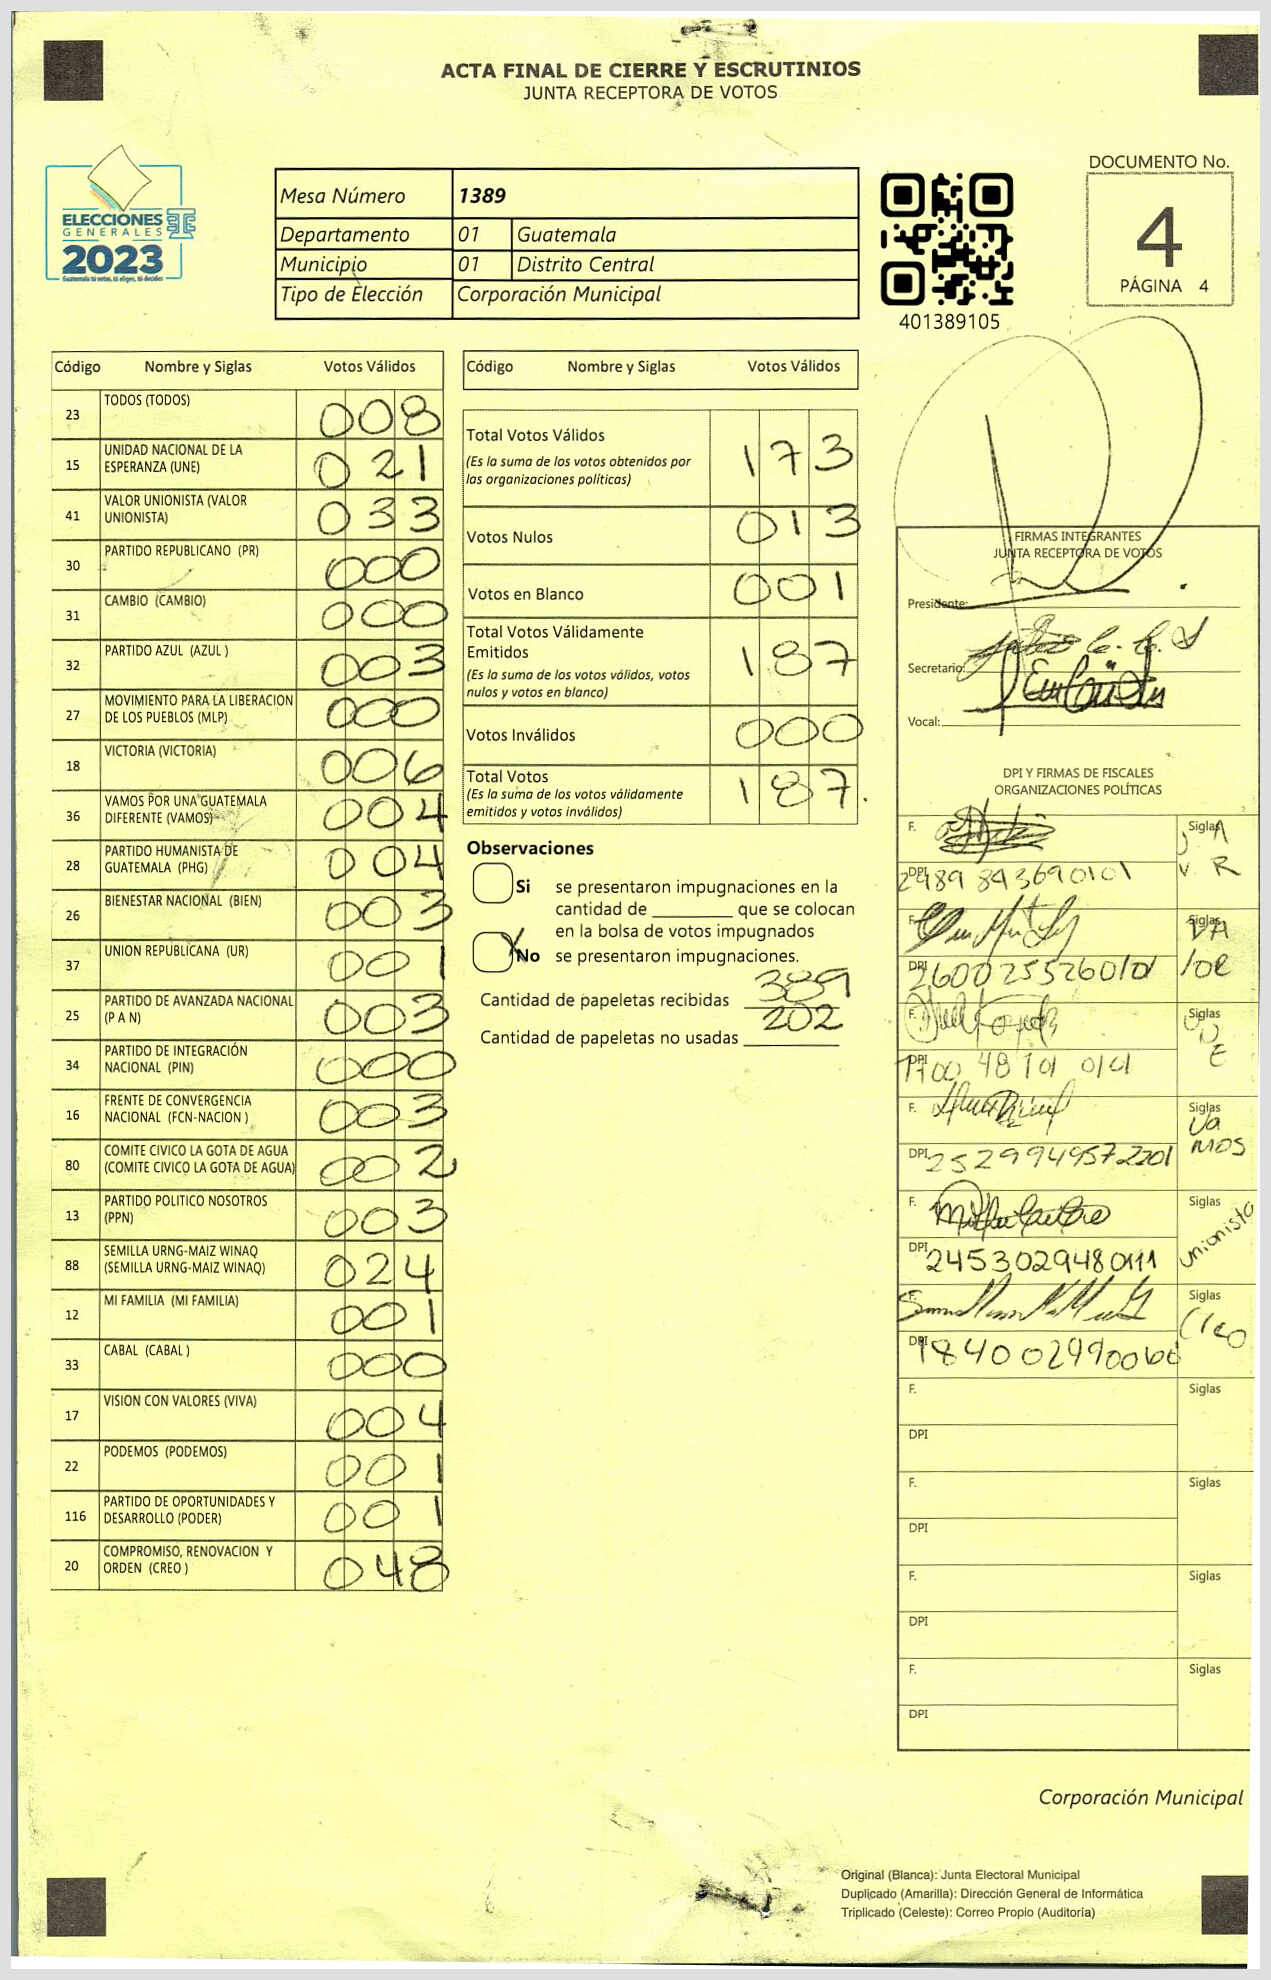 ACTA FINAL DE CIERRE Y ESCRUTINIOS
JUNTA RECEPTORA DE VOTOS
ELECCIONES
GENERALES
2023
Guatemala tú votas, tú eliges, tú decides
Mesa Número 1389
Departamento 01 Guatemala
Municipio 01 Distrito Central
Tipo de Elección Corporación Municipal
401389105
DOCUMENTO No.
4
PÁGINA 4
Código Nombre y Siglas Votos Válidos
23 TODOS (TODOS) 008
15 UNIDAD NACIONAL DE LA
ESPERANZA (UNE) 021
41 VALOR UNIONISTA (VALOR
UNIONISTA) 033
30 PARTIDO REPUBLICANO (PR) 000
31 CAMBIO (CAMBIO) 000
32 PARTIDO AZUL (AZUL ) 003
27 MOVIMIENTO PARA LA LIBERACION
DE LOS PUEBLOS (MLP) 000
18 VICTORIA (VICTORIA) 006
36 VAMOS POR UNA GUATEMALA
DIFERENTE (VAMOS) 004
28 PARTIDO HUMANISTA DE
GUATEMALA (PHG) 004
26 BIENESTAR NACIONAL (BIEN) 003
37 UNION REPUBLICANA (UR) 001
25 PARTIDO DE AVANZADA NACIONAL
(P A N) 003
34 PARTIDO DE INTEGRACIÓN
NACIONAL (PIN) 000
16 FRENTE DE CONVERGENCIA
NACIONAL (FCN-NACION ) 003
80 COMITE CIVICO LA GOTA DE AGUA
(COMITE CIVICO LA GOTA DE AGUA) 002
13 PARTIDO POLITICO NOSOTROS
(PPN) 003
88 SEMILLA URNG-MAIZ WINAQ
(SEMILLA URNG-MAIZ WINAQ) 024
12 MI FAMILIA (MI FAMILIA) 001
33 CABAL (CABAL ) 000
17 VISION CON VALORES (VIVA) 004
22 PODEMOS (PODEMOS) 001
116 PARTIDO DE OPORTUNIDADES Y
DESARROLLO (PODER) 001
20 COMPROMISO, RENOVACION Y
ORDEN (CREO ) 048
Código Nombre y Siglas Votos Válidos
Total Votos Válidos 173
(Es la suma de los votos obtenidos por
las organizaciones políticas)
Votos Nulos 013
Votos en Blanco 001
Total Votos Válidamente
Emitidos 187
(Es la suma de los votos válidos, votos
nulos y votos en blanco)
Votos Inválidos 000
Total Votos 187.
(Es la suma de los votos válidamente
emitidos y votos inválidos)
Observaciones
Si se presentaron impugnaciones en la
cantidad de ________ que se colocan
en la bolsa de votos impugnados
X No se presentaron impugnaciones.
Cantidad de papeletas recibidas 389
Cantidad de papeletas no usadas 202
FIRMAS INTEGRANTES
JUNTA RECEPTORA DE VOTOS
Presidente:
Secretario:
Vocal:
DPI Y FIRMAS DE FISCALES
ORGANIZACIONES POLÍTICAS
F. Siglas
DPI 2489 843690101 V. R
F. Siglas VA
DPI 2600255260101 lor
F. Siglas U N
DPI 1700 48101 0101 E
F. Siglas Va
DPI 2529949572201 mos
F. Siglas
DPI 2453029480111 unionista
F. Siglas
DPI Creo
F. Siglas
DPI
F. Siglas
DPI
F. Siglas
DPI
F. Siglas
DPI
Corporación Municipal
Original (Blanca): Junta Electoral Municipal
Duplicado (Amarilla): Dirección General de Informática
Triplicado (Celeste): Correo Propio (Auditoría)